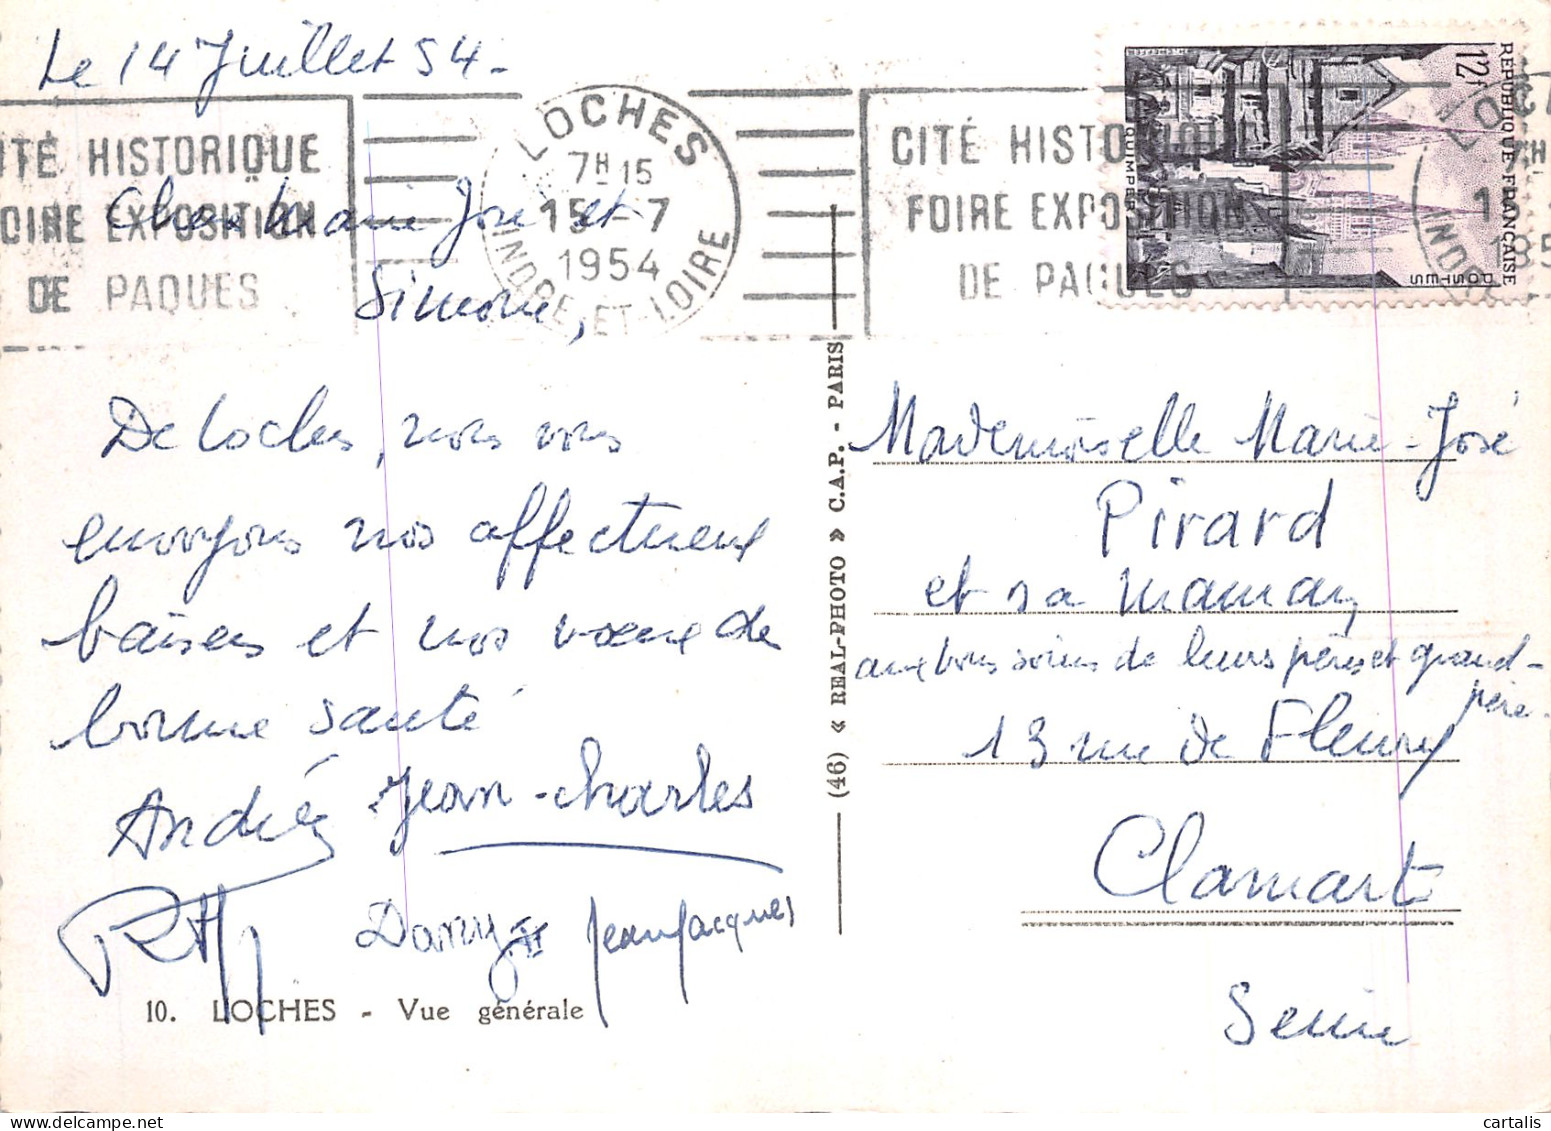 Le 14 Juillet 54.
ITÉ HISTORIQUE
OIRE EXPOSITION
DE PAQUES
LOCHES
7H 15
15 -7
1954
INDRE-ET-LOIRE
CITÉ HISTORIQUE
FOIRE EXPOSITION
DE PAQUES
REPUBLIQUE FRANÇAISE
12F
POSTES
QUIMPER
Chère Marie José et
Simone,
De Loches, nous vous
envoyons nos affectueux
baisers et nos voeux de
bonne santé
Andrée Jean-Charles
Dany Jean Jacques
10. LOCHES - Vue générale
(46) « REAL-PHOTO » C.A.P. - PARIS
Mademoiselle Marie-José
Pirard
et sa maman
aux bons soins de leurs père et grand-
père.
13 rue de Fleury
Clamart
Seine
cartalis